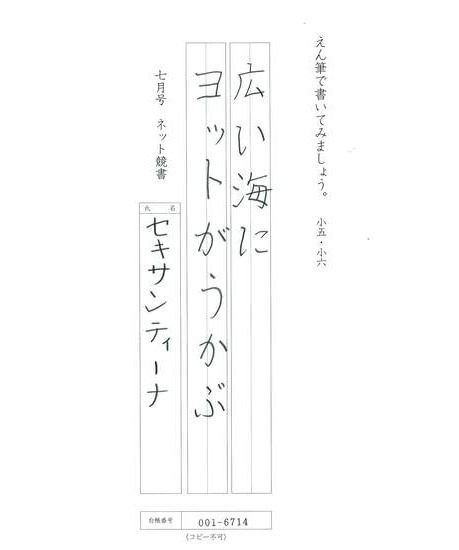 えん筆で書いてみましょう。 小五・小六
広い海に
ヨットがうかぶ
七月号 ネット競書
氏名
セキサンティーナ
台帳番号 001-6714
(コピー不可)